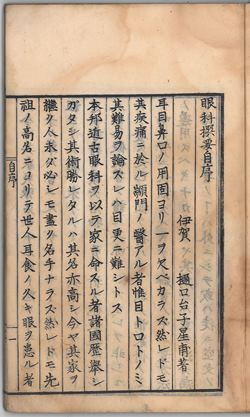 眼科撰要自序
伊賀 樋口台子星甫著
耳目鼻口ノ用固ヨリ一ヲ欠ベカラズ然レドモ
其疾痛ニ於ル顓門ノ醫アル者惟目トロトノミ
其難易ヲ論スレハ目更ニ難シトス
本邦逎古眼科ヲ以テ家ニ命スル者諸國歴舉シ
ガタシ其術勝レタルハ其名亦高シ今ヤ其家ヲ
継ク人未ダ必シモ盡ク名手ナラズ然レドモ先
祖ノ高名ニヨリテ世人耳食ノ久キ眼ヲ患ル者
自序
一